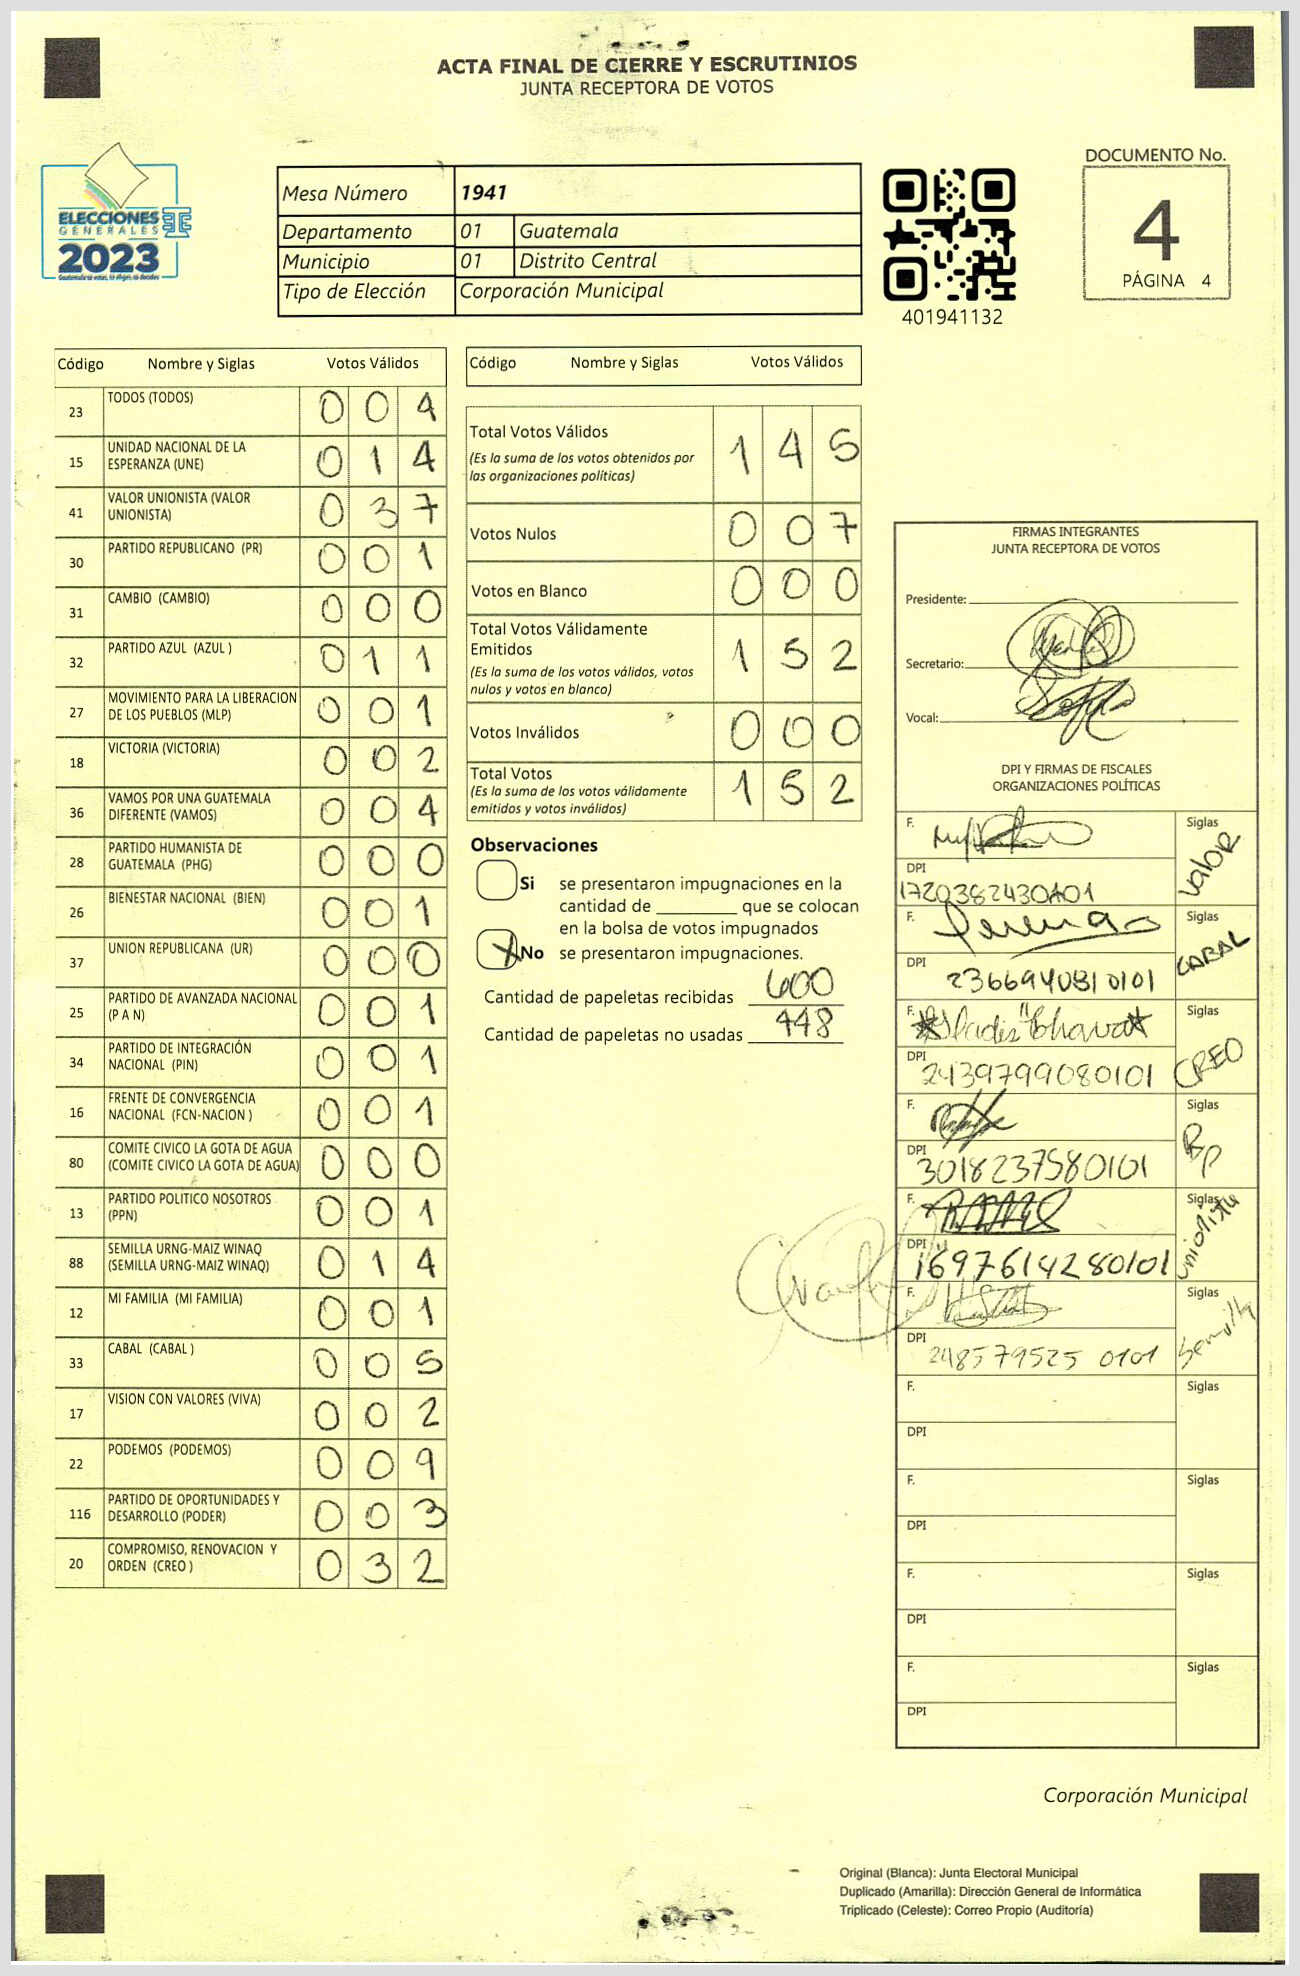 ACTA FINAL DE CIERRE Y ESCRUTINIOS
JUNTA RECEPTORA DE VOTOS
ELECCIONES
GENERALES
2023
Mesa Número 1941
Departamento 01 Guatemala
Municipio 01 Distrito Central
Tipo de Elección Corporación Municipal
401941132
DOCUMENTO No.
4
PÁGINA 4
Código Nombre y Siglas Votos Válidos
23 TODOS (TODOS) 0 0 4
15 UNIDAD NACIONAL DE LA
ESPERANZA (UNE) 0 1 4
41 VALOR UNIONISTA (VALOR
UNIONISTA) 0 3 7
30 PARTIDO REPUBLICANO (PR) 0 0 1
31 CAMBIO (CAMBIO) 0 0 0
32 PARTIDO AZUL (AZUL ) 0 1 1
27 MOVIMIENTO PARA LA LIBERACION
DE LOS PUEBLOS (MLP) 0 0 1
18 VICTORIA (VICTORIA) 0 0 2
36 VAMOS POR UNA GUATEMALA
DIFERENTE (VAMOS) 0 0 4
28 PARTIDO HUMANISTA DE
GUATEMALA (PHG) 0 0 0
26 BIENESTAR NACIONAL (BIEN) 0 0 1
37 UNION REPUBLICANA (UR) 0 0 0
25 PARTIDO DE AVANZADA NACIONAL
(P A N) 0 0 1
34 PARTIDO DE INTEGRACIÓN
NACIONAL (PIN) 0 0 1
16 FRENTE DE CONVERGENCIA
NACIONAL (FCN-NACION ) 0 0 1
80 COMITE CIVICO LA GOTA DE AGUA
(COMITE CIVICO LA GOTA DE AGUA) 0 0 0
13 PARTIDO POLITICO NOSOTROS
(PPN) 0 0 1
88 SEMILLA URNG-MAIZ WINAQ
(SEMILLA URNG-MAIZ WINAQ) 0 1 4
12 MI FAMILIA (MI FAMILIA) 0 0 1
33 CABAL (CABAL ) 0 0 5
17 VISION CON VALORES (VIVA) 0 0 2
22 PODEMOS (PODEMOS) 0 0 9
116 PARTIDO DE OPORTUNIDADES Y
DESARROLLO (PODER) 0 0 3
20 COMPROMISO, RENOVACION Y
ORDEN (CREO ) 0 3 2
Código Nombre y Siglas Votos Válidos
Total Votos Válidos 1 4 5
(Es la suma de los votos obtenidos por
las organizaciones políticas)
Votos Nulos 0 0 7
Votos en Blanco 0 0 0
Total Votos Válidamente
Emitidos 1 5 2
(Es la suma de los votos válidos, votos
nulos y votos en blanco)
Votos Inválidos 0 0 0
Total Votos 1 5 2
(Es la suma de los votos válidamente
emitidos y votos inválidos)
Observaciones
Si se presentaron impugnaciones en la
cantidad de ________ que se colocan
en la bolsa de votos impugnados
X No se presentaron impugnaciones.
Cantidad de papeletas recibidas 600
Cantidad de papeletas no usadas 448
FIRMAS INTEGRANTES
JUNTA RECEPTORA DE VOTOS
Presidente:
Secretario:
Vocal:
DPI Y FIRMAS DE FISCALES
ORGANIZACIONES POLÍTICAS
F. Siglas
Valor
DPI
1720382430101
F. Siglas
CABAL
DPI
2366940810101
F. Siglas
CREO
DPI
2439799080101
F. Siglas
DPI
3018237580101
F. Siglas
unionista
DPI
1697614280101
F. Siglas
Semilla
DPI
248579525 0101
F. Siglas
DPI
F. Siglas
DPI
F. Siglas
DPI
F. Siglas
DPI
Corporación Municipal
Original (Blanca): Junta Electoral Municipal
Duplicado (Amarilla): Dirección General de Informática
Triplicado (Celeste): Correo Propio (Auditoría)